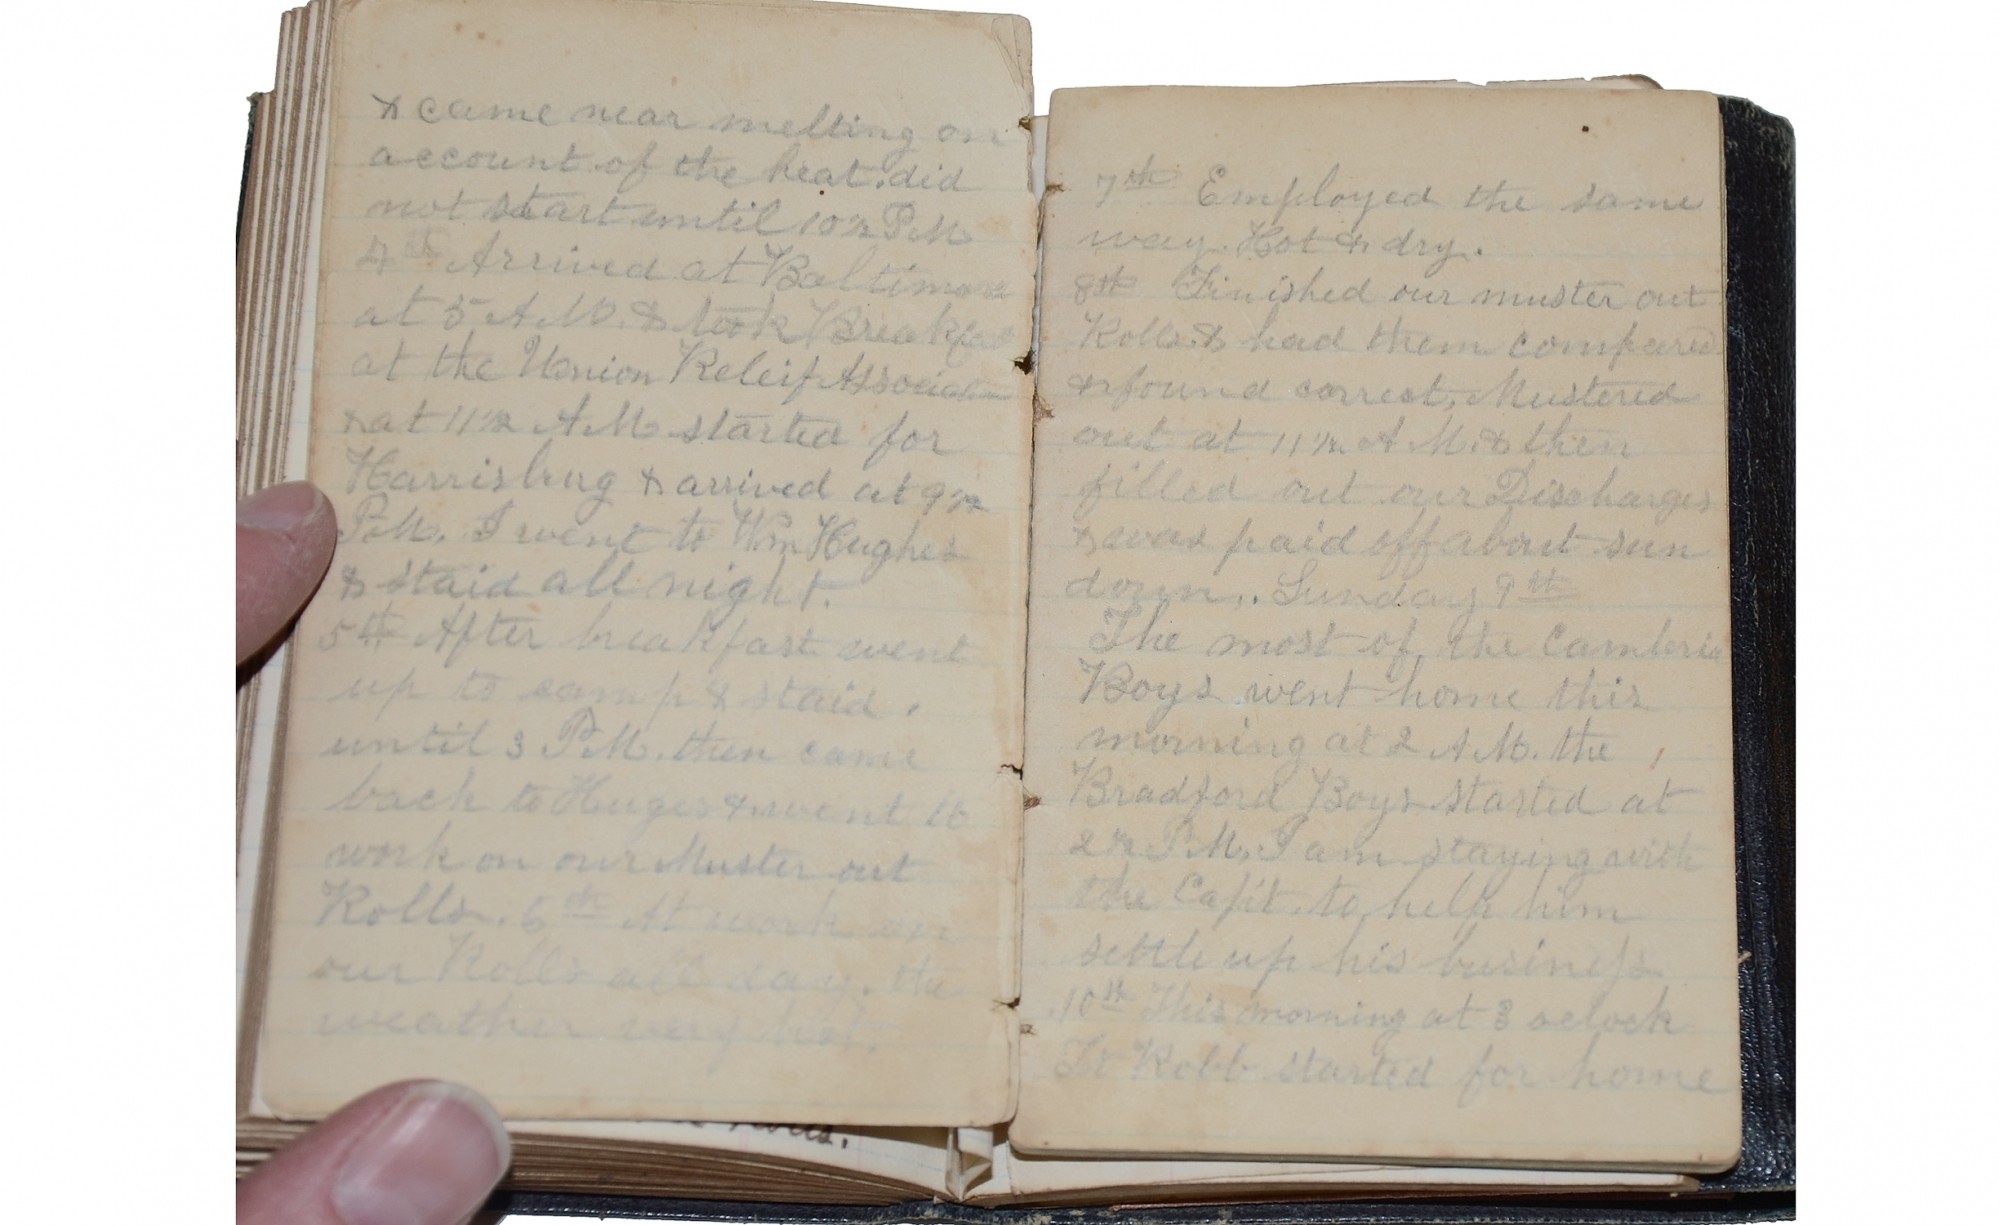 & came near melting on
account of the heat. did
not start until 10½ P.M
4th Arrived at Baltimore
at 5 A.M. & took Breakfast
at the Union Releif Association
& at 11½ A.M. started for
Harrisburg & arrived at 9½
P.M. I went to Wm Hughes
& staid all night.
5th After breakfast went
up to camp & staid.
until 3 P.M. then came
back to Huges & went to
work on our Muster out
Rolls. 6th At work on
our Rolls all day. the
weather very hot.
7th Employed the same
way. Hot & dry.
8th Finished our muster out
Rolls & had them compared
& found correct, Mustered
out at 11½ A.M. & then
filled out our Discharges
& was paid off about sun
down. Sunday 9th
The most of the Cambria
Boys went home this
morning at 2 A.M. the
Bradford Boys started at
2½ P.M. I am staying with
the Capt. to help him
settle up his business
10th This morning at 3 oclock
Lt Robb started for home
rolls.